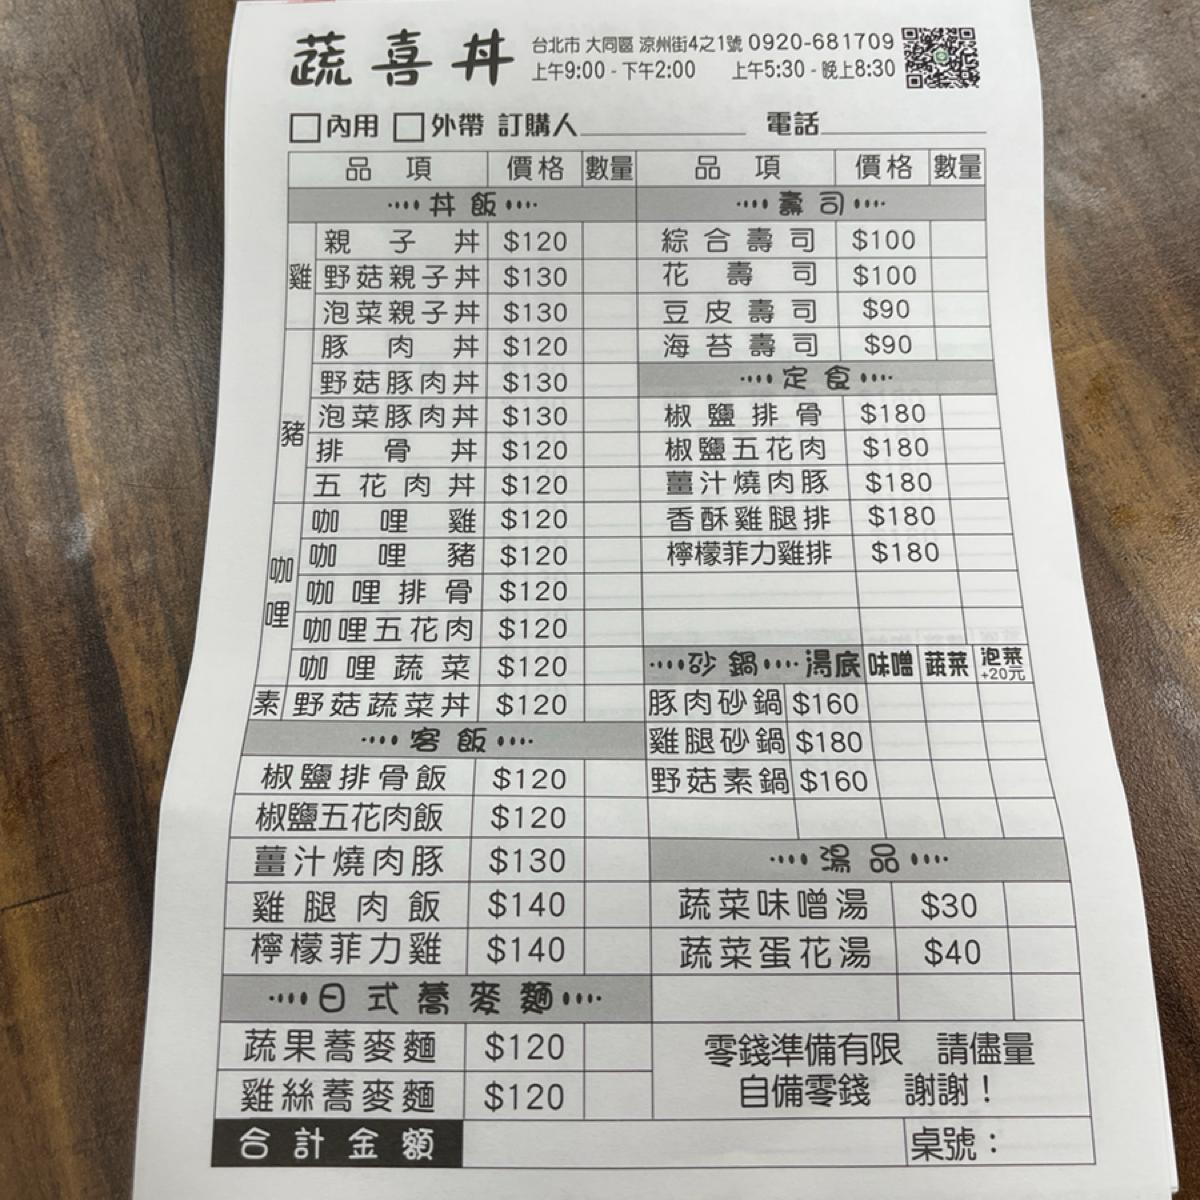 蔬喜丼 台北市 大同區 涼州街4之1號 0920-681709
上午9:00 - 下午2:00 上午5:30 - 晚上8:30
內用 外帶 訂購人 電話
品項 價格 數量 品項 價格 數量
丼飯 壽司
雞 親子丼 $120 綜合壽司 $100
野菇親子丼 $130 花壽司 $100
泡菜親子丼 $130 豆皮壽司 $90
豬 豚肉丼 $120 海苔壽司 $90
野菇豚肉丼 $130 定食
泡菜豚肉丼 $130 椒鹽排骨 $180
排骨丼 $120 椒鹽五花肉 $180
五花肉丼 $120 薑汁燒肉豚 $180
咖哩 咖哩雞 $120 香酥雞腿排 $180
咖哩豬 $120 檸檬菲力雞排 $180
咖哩排骨 $120
咖哩五花肉 $120
咖哩蔬菜 $120 砂鍋 湯底 味噌 蔬菜 泡菜+20元
素 野菇蔬菜丼 $120 豚肉砂鍋 $160
客飯 雞腿砂鍋 $180
椒鹽排骨飯 $120 野菇素鍋 $160
椒鹽五花肉飯 $120
薑汁燒肉豚 $130 湯品
雞腿肉飯 $140 蔬菜味噌湯 $30
檸檬菲力雞 $140 蔬菜蛋花湯 $40
日式蕎麥麵
蔬果蕎麥麵 $120 零錢準備有限 請儘量
雞絲蕎麥麵 $120 自備零錢 謝謝！
合計金額 桌號：